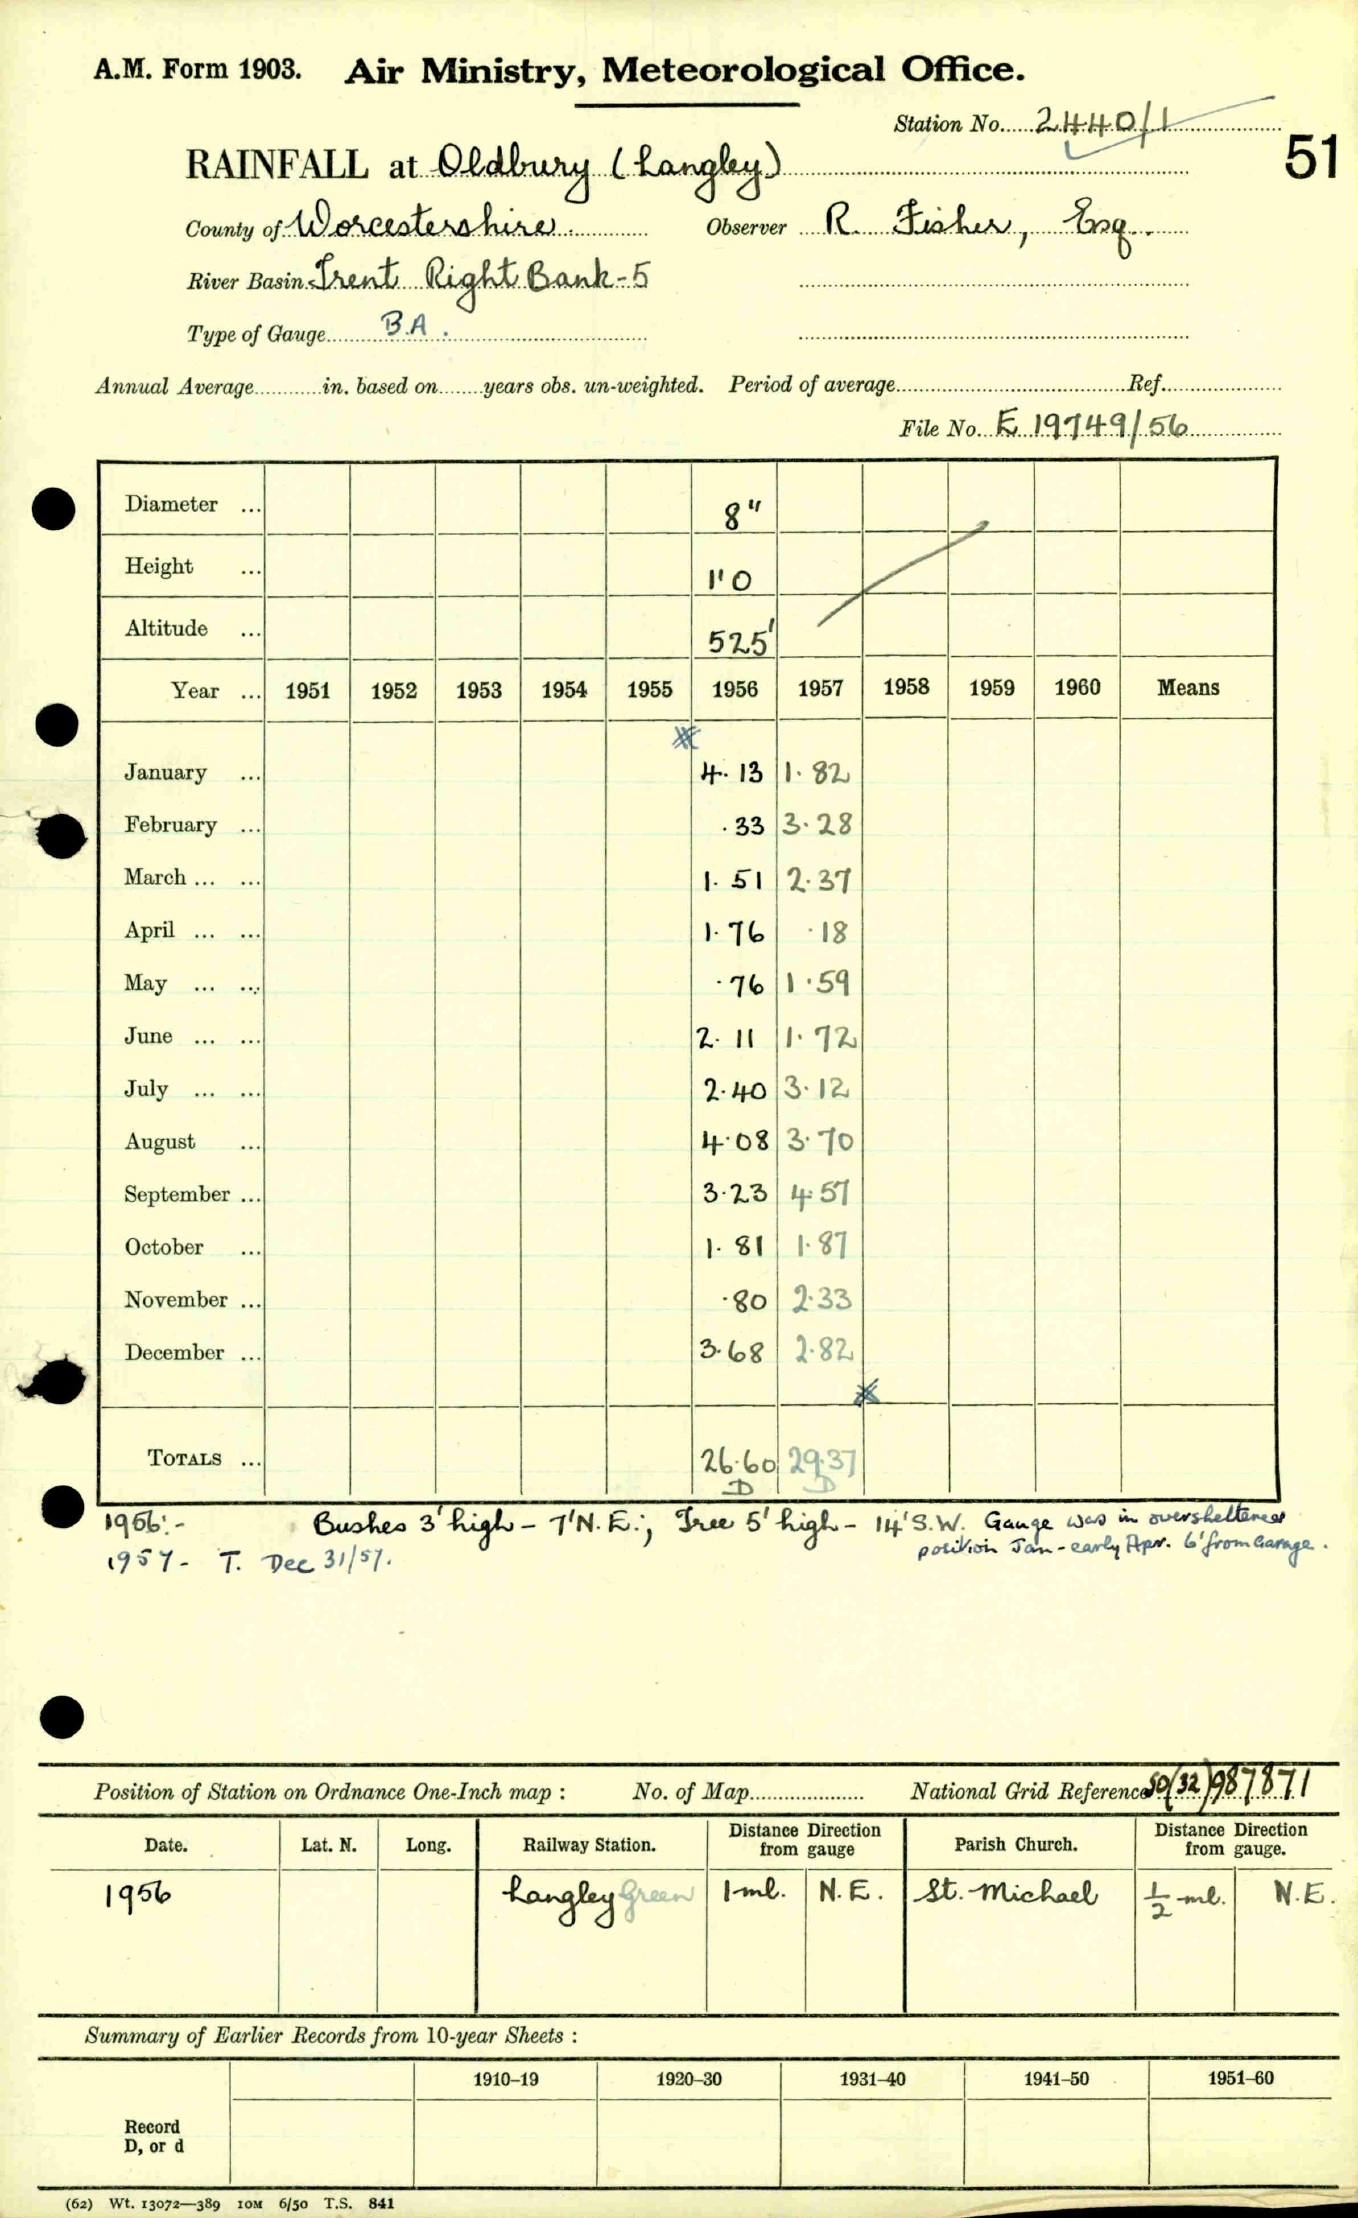 A.M. Form 1903. Air Ministry, Meteorological Office.
Station No. 2440/1
51
RAINFALL at Oldbury (Langley)
County of Worcestershire. Observer R. Fisher, Esq.
River Basin Trent Right Bank-5
Type of Gauge B.A.
Annual Average in. based on years obs. un-weighted. Period of average Ref.
File No. E 19749/56
Diameter ... 8"
Height ... 1'0
Altitude ... 525'
Year ... 1951 1952 1953 1954 1955 1956 1957 1958 1959 1960 Means
January ... 4.13 1.82
February ... .33 3.28
March ... ... 1.51 2.37
April ... ... 1.76 .18
May ... ... .76 1.59
June ... ... 2.11 1.72
July ... ... 2.40 3.12
August ... 4.08 3.70
September ... 3.23 4.57
October ... 1.81 1.87
November ... .80 2.33
December ... 3.68 2.82
TOTALS ... 26.60 29.37
D D
1956:- Bushes 3' high - 7' N.E.; Tree 5' high - 14' S.W. Gauge was in oversheltered
position Jan - early Apr. 6' from Garage.
1957- T. Dec 31/57.
Position of Station on Ordnance One-Inch map : No. of Map National Grid Reference 50(32)987871
Date. Lat. N. Long. Railway Station. Distance Direction from gauge Parish Church. Distance Direction from gauge.
1956 Langley Green 1 ml. N.E. St. Michael 1/2 ml. N.E.
Summary of Earlier Records from 10-year Sheets :
1910–19 1920–30 1931–40 1941–50 1951–60
Record
D, or d
(62) Wt. 13072—389 10M 6/50 T.S. 841